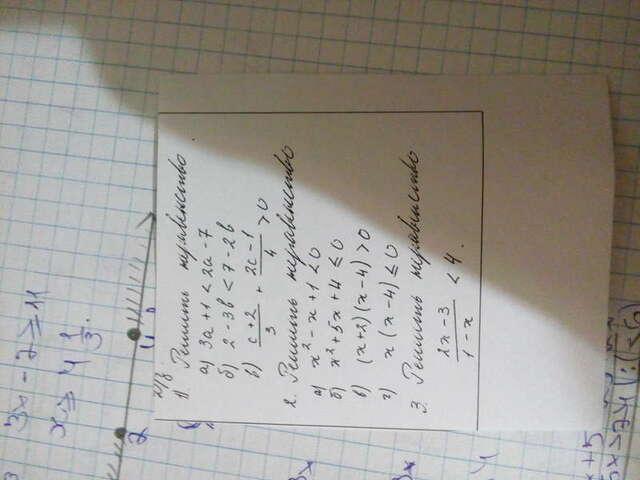 3x - 2 ≥ 11
x ≥ 4 1/3.
2
Д/з.
1) Решить неравенство.
а) 3a + 1 < 2a - 7
б) 2 - 3b < 7 - 2b
в) (c+2)/3 + (2c-1)/4 > 0
2. Решить неравенство
а) x² - x + 1 < 0
б) x² + 5x + 4 ≤ 0
в) (x+2)(x-4) > 0
г) x(x-4) ≤ 0
3. Решить неравенство
(2x-3)/(1-x) < 4.